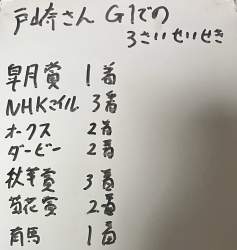 戸崎さん G1での
3さいせいせき
皐月賞 1着
NHKマイル 3着
オークス 2着
ダービー 2着
秋華賞 3着
菊花賞 2着
有馬 1着